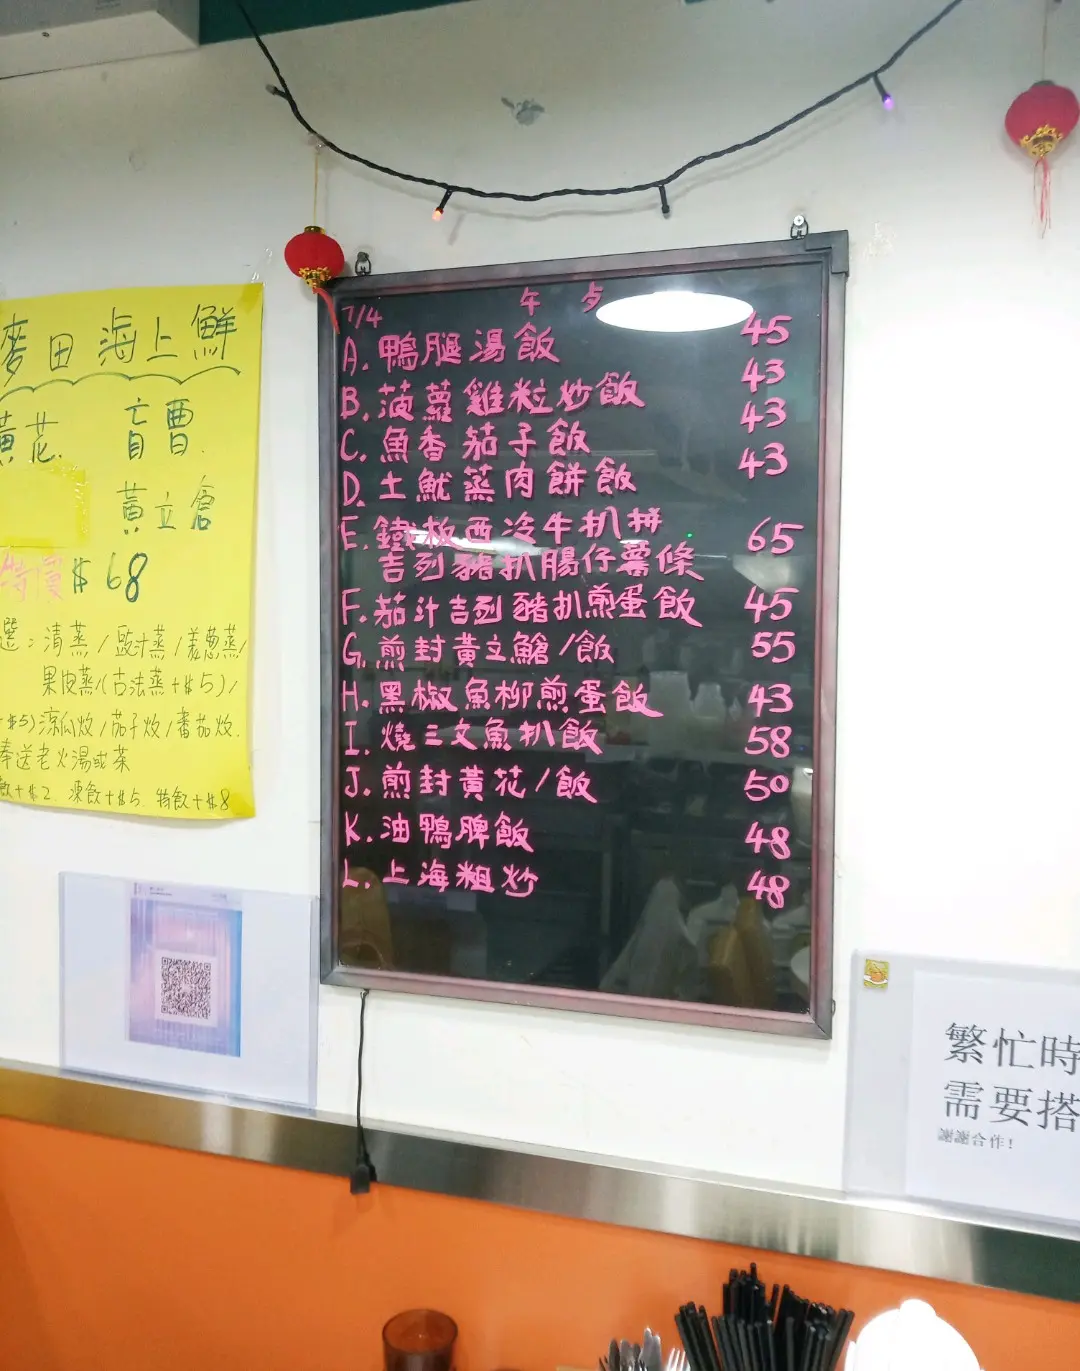 麥田海上鮮
黃花 盲曹
黃立倉
特價$68
選：清蒸/豉汁蒸/羌蔥蒸/
果皮蒸/(古法蒸+$5)/
+$5)涼瓜炆/茄子炆/番茄炆.
奉送老火湯或茶
飲+$2 凍飲+$5 特飲+$8
7/4 午歺
A. 鴨腿湯飯 45
B. 菠蘿雞粒炒飯 43
C. 魚香茄子飯 43
D. 土魷蒸肉餅飯 43
E. 鐵板西冷牛扒拼
吉列豬扒腸仔薯條 65
F. 茄汁吉列豬扒煎蛋飯 45
G. 煎封黃立鱠/飯 55
H. 黑椒魚柳煎蛋飯 43
I. 燒三文魚扒飯 58
J. 煎封黃花/飯 50
K. 油鴨脾飯 48
L. 上海粗炒 48
繁忙時
需要搭
謝謝合作!